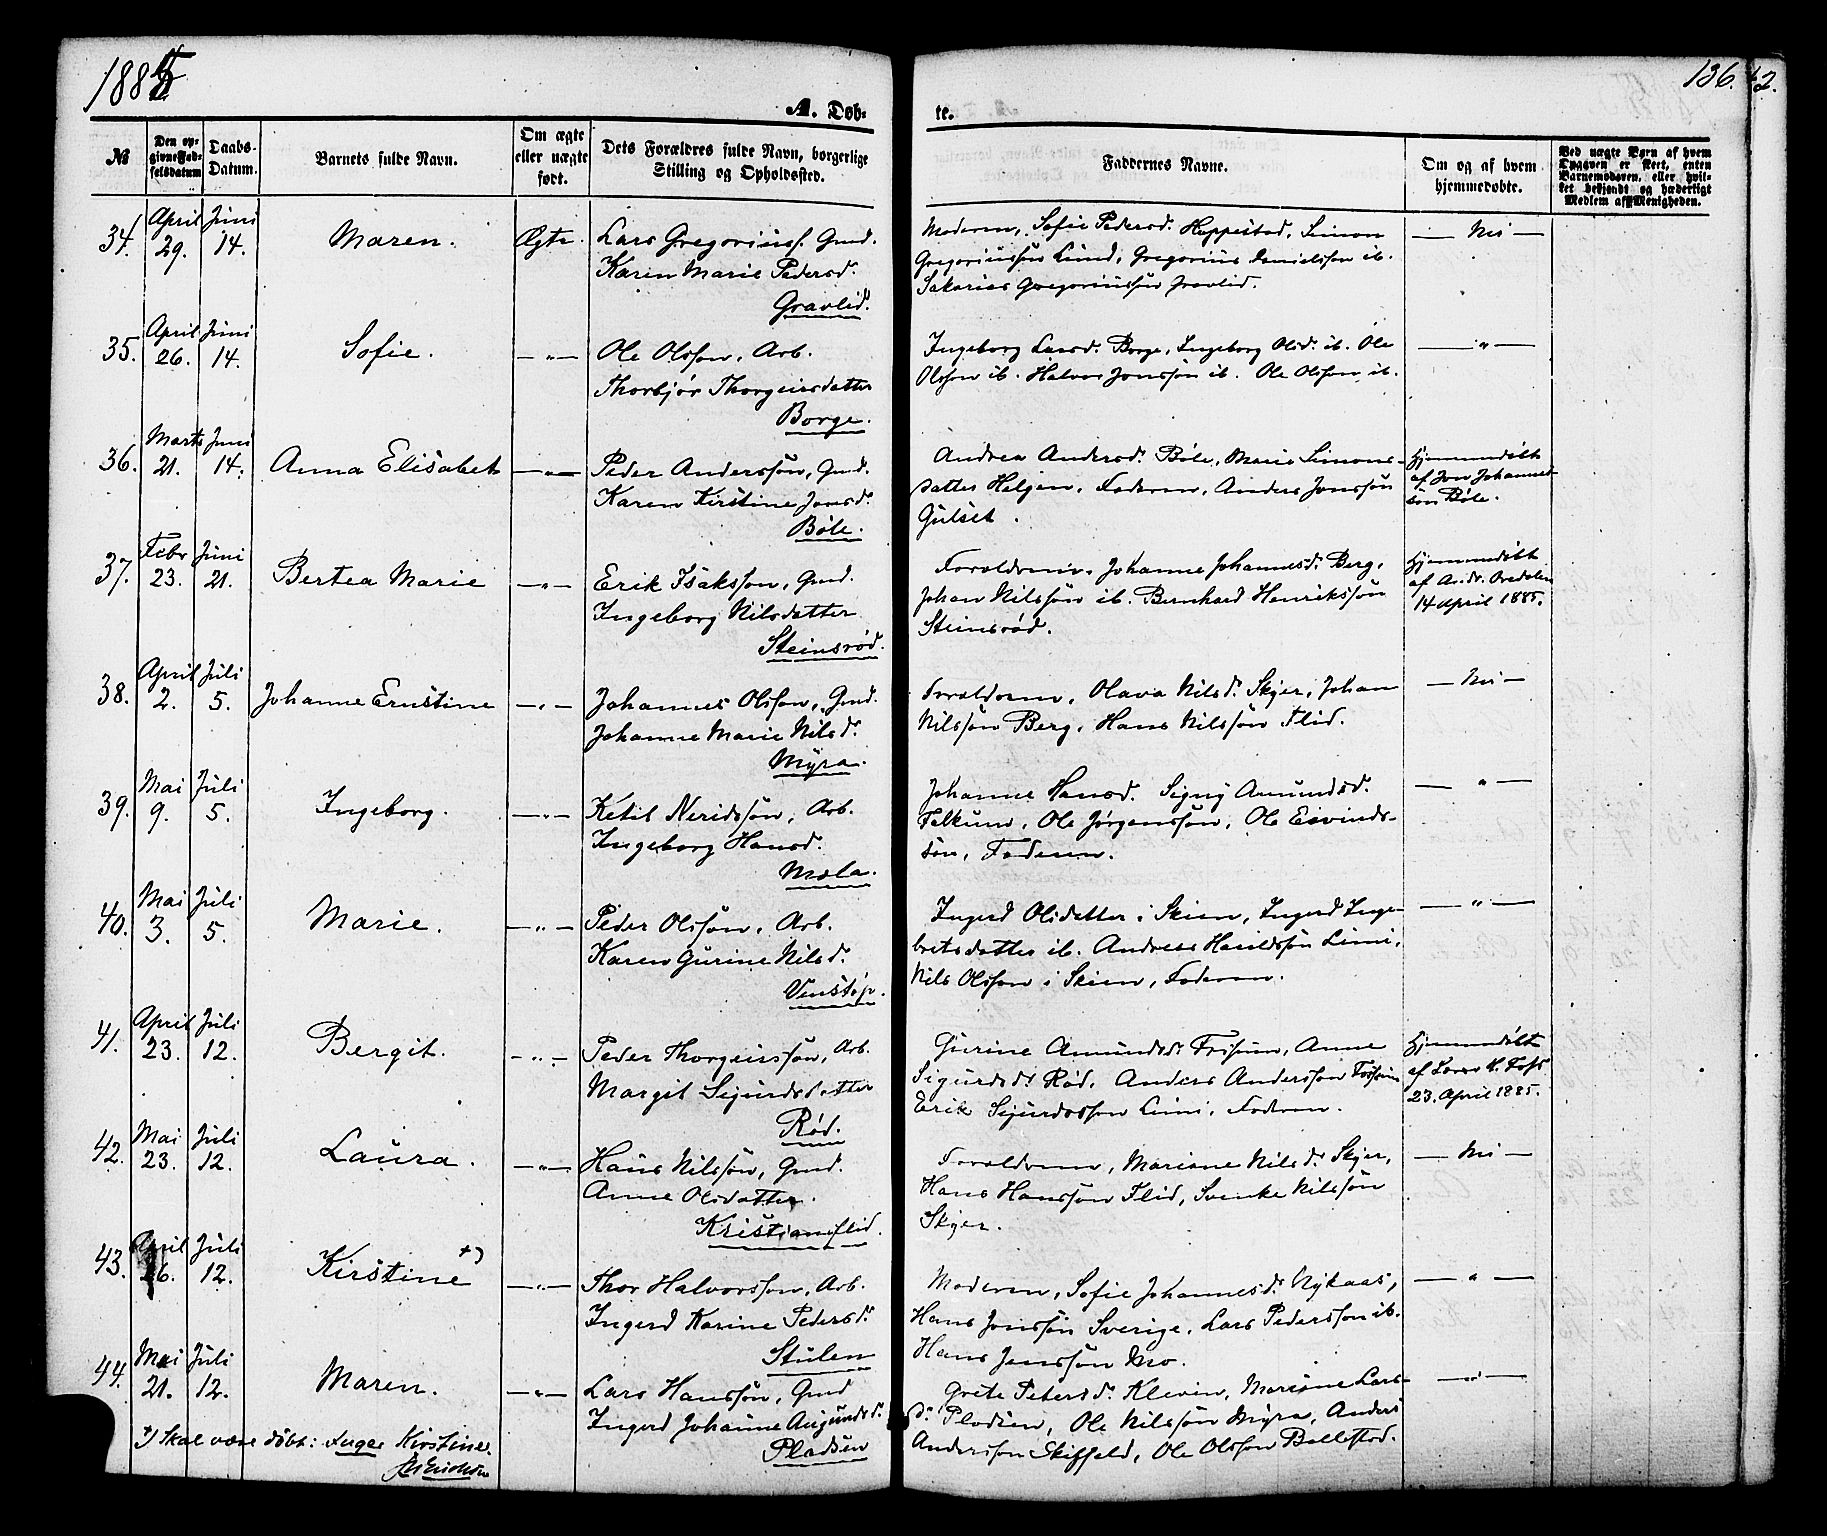 1885
136. 42.
A. Døb-
te.
No
Den op-
givne Fød-
selsdatum
Daabs-
Datum.
Barnets fulde Navn.
Om ægte
eller uægte
født.
Dets Forældres fulde Navn, borgerlige
Stilling og Opholdssted.
Faddernes Navne.
Om og af hvem
hjemmedøbte.
Ved uægte Børn af hvem
Opgaven er skeet, enten
Barnemoderen, eller hvil-
ket bekjendt og hæderligt
Medlem af Menigheden.
34. April 29. Juni 14. Maren. Ægte. Lars Gregoriuss. Gmd.
Karen Marie Pedersd.
Gravlid.
Moderen, Sofie Pedersd. Heppestad, Simon
Gregoriussøn Lund, Gregorius Danielssøn ib.
Sakarias Gregoriussøn Gravlid.
— Nei —
35. April 26. Juni 14. Sofie. — " — Ole Olssøn, Arb.
Thorbjør Thorgeirsdatter
Borge.
Ingeborg Larsd. Borge, Ingeborg Olsd. ib. Ole
Olssøn ib. Halvor Jonssøn ib. Ole Olssøn ib.
— " —
36. Marts 21. Juni 14. Anna Elisabet — " — Peder Anderssøn, Gmd.
Karen Kirstine Jonsd.
Bøle.
Andrea Andersd. Bøle, Marie Simons-
datter Helgen, Faderen, Anders Jonssøn
Gulset.
Hjemmedøbt
af Jon Johannes-
søn Bøle.
37. Febr 23. Juni 21. Bertea Marie — " — Erik Isakssøn, Gmd.
Ingeborg Nilsdatter
Steinsrød.
Forældrene, Johanne Johannesd. Berg,
Johan Nilssøn ib. Bernhard Henrikssøn
Steinsrød.
Hjemmedøbt
af And. Ovedalen
14 April 1885.
38. April 2. Juli 5. Johanne Ernstine — " — Johannes Olssøn, Gmd.
Johanne Marie Nilsd.
Myra.
Forældrene, Olava Nilsd. Skjer, Johan
Nilssøn Berg, Hans Nilssøn Flid.
— Nei —
39. Mai 9. Juli 5. Ingeborg. — " — Ketil Neridssøn, Arb.
Ingeborg Hansd.
Mæla.
Johanne Hansd. Signy Amundsd.
Falkum, Ole Jørgenssøn, Ole Eivinds-
søn, Faderen.
— " —
40. Mai 3. Juli 5. Marie. — " — Peder Olssøn, Arb.
Karen Gurine Nilsd.
Venstøp.
Ingerd Olsdatter i Skien, Ingerd Inge-
bretsdatter ib. Andreas Haraldssøn Limi,
Nils Olssøn i Skien, Faderen.
— " —
41. April 23. Juli 12. Bergit. — " — Peder Thorgeirssøn, Arb.
Margit Sigurdsdatter
Rød.
Gurine Amundsd. Fossum, Anne
Sigurdsd. Rød, Anders Anderssøn Fossum
Erik Sigurdssøn Limi, Faderen.
Hjemmedøbt
af Foss
23. April 1885.
42. Mai 23. Juli 12. Laura. — " — Hans Nilssøn, Gmd.
Anne Olsdatter.
Kristiansflid.
Forældrene, Mariane Nilsd. Skjer,
Hans Hanssøn Flid, Svenke Nilssøn
Skjer.
— Nei —
43. April 26. Juli 12. Kirstine +) — " — Thor Halvorssøn, Arb.
Ingerd Karine Pedersd.
Stulen
Moderen, Sofie Johannesd. Nykaas,
Hans Jonssøn Sverige, Lars Pederssøn ib.
Hans Jenssøn Mo.
— " —
44. Mai 21. Juli 12. Maren. — " — Lars Hanssøn, Gmd
Ingerd Johanne Augundsd.
Pladsen
Grete Petersd. Kleven, Mariane Lars-
d. Pladsen, Ole Nilssøn Myra, Anders
Anderssøn Skiffeld, Ole Olssøn Ballestad.
— " —
+) Skal være døbt: Inger Kirstine.